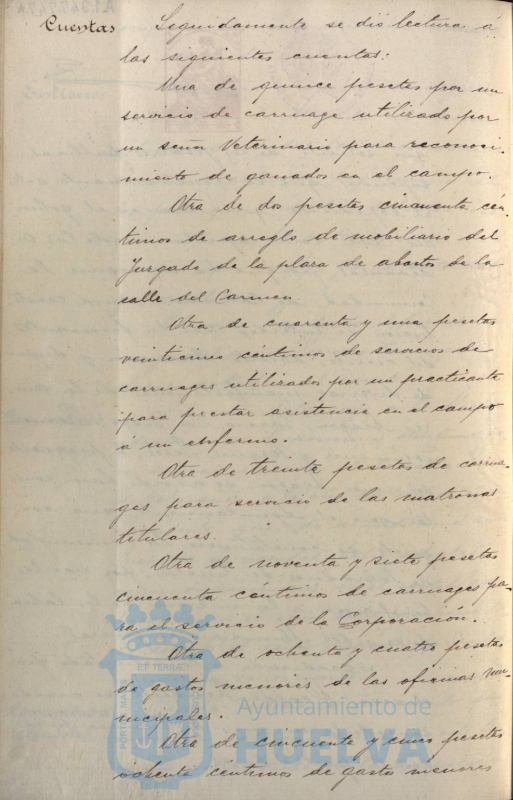 Cuentas Seguidamente se dió lectura á
las siguientes cuentas:
Una de quince pesetas por un
servicio de carruage utilizado por
un señor Veterinario para reconoci-
miento de ganados en el campo.
Otra de dos pesetas cincuenta cén-
timos de arreglo de mobiliario del
Juzgado de la plaza de abastos de la
calle del Carmen
Otra de cuarenta y una pesetas
veinticinco céntimos de servicios de
carruages utilizados por un practicante
para prestar asistencia en el campo
á un enfermo.
Otra de treinta pesetas de carrua-
ges para servicio de las matronas
titulares.
Otra de noventa y siete pesetas
cincuenta céntimos de carruages pa-
ra el servicio de la Corporación.
Otra de ochenta y cuatro pesetas
de gastos menores de las oficinas mu-
nicipales.
Otra de cincuenta y cinco pesetas
ochenta céntimos de gastos menores
Ayuntamiento de
HUELVA